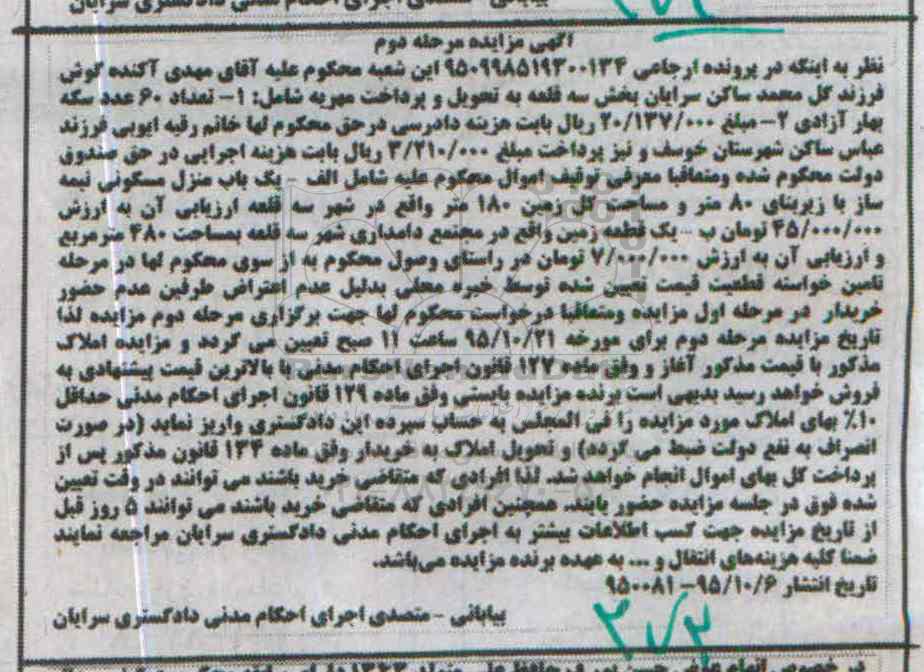 بیابانی - متصدی اجرای احکام مدنی دادگستری سرایان
آگهی مزایده مرحله دوم
نظر به اینکه در پرونده ارجاعی ۹۵۰۹۹۸۵۱۹۳۰۰۱۳۴ این شعبه محکوم علیه آقای مهدی آکنده گوش
فرزند گل محمد ساکن سرایان بخش سه قلعه به تحویل و پرداخت مهریه شامل: ۱- تعداد ۶۰ عدد سکه
بهار آزادی ۲- مبلغ ۲۰/۱۳۷/۰۰۰ ریال بابت هزینه دادرسی درحق محکوم لها خانم رقیه ایوبی فرزند
عباس ساکن شهرستان خوسف و نیز پرداخت مبلغ ۳/۲۱۰/۰۰۰ ریال بابت هزینه اجرایی در حق صندوق
دولت محکوم شده ومتعاقبا معرفی توقیف اموال محکوم علیه شامل الف - یک باب منزل مسکونی نیمه
ساز با زیربنای ۸۰ متر و مساحت کل زمین ۱۸۰ متر واقع در شهر سه قلعه ارزیابی آن به ارزش
۴۵/۰۰۰/۰۰۰ تومان ب - یک قطعه زمین واقع در مجتمع دامداری شهر سه قلعه بمساحت ۴۸۰ متر مربع
و ارزیابی آن به ارزش ۷/۰۰۰/۰۰۰ تومان در راستای وصول محکوم به از سوی محکوم لها در مرحله
تامین خواسته قطعیت قیمت تعیین شده توسط خبره محلی بدلیل عدم اعتراض طرفین عدم حضور
خریدار در مرحله اول مزایده ومتعاقبا درخواست محکوم لها جهت برگزاری مرحله دوم مزایده لذا
تاریخ مزایده مرحله دوم برای مورخه ۹۵/۱۰/۲۱ ساعت ۱۱ صبح تعیین می گردد و مزایده املاک
مذکور با قیمت مذکور آغاز و وفق ماده ۱۲۷ قانون اجرای احکام مدنی با بالاترین قیمت پیشنهادی به
فروش خواهد رسید بدیهی است برنده مزایده بایستی وفق ماده ۱۲۹ قانون اجرای احکام مدنی حداقل
۱۰٪ بهای املاک مورد مزایده را فی المجلس به حساب سپرده این دادگستری واریز نماید (در صورت
انصراف به نفع دولت ضبط می گردد) و تحویل املاک به خریدار وفق ماده ۱۳۴ قانون مذکور پس از
پرداخت کل بهای اموال انجام خواهد شد. لذا افرادی که متقاضی خرید باشند می توانند در وقت تعیین
شده فوق در جلسه مزایده حضور یابند. همچنین افرادی که متقاضی خرید باشند می توانند ۵ روز قبل
از تاریخ مزایده جهت کسب اطلاعات بیشتر به اجرای احکام مدنی دادگستری سرایان مراجعه نمایند
ضمنا کلیه هزینه‌های انتقال و ... به عهده برنده مزایده می‌باشد.
تاریخ انتشار ۹۵/۱۰/۶-۹۵۰۰۸۱
بیابانی - متصدی اجرای احکام مدنی دادگستری سرایان